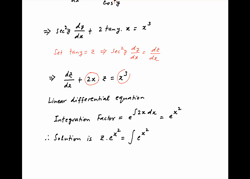 cos²y
⇒ sec²y dy/dx + 2 tany. x = x³
Set tany = z ⇒ sec²y dy/dx = dz/dx
⇒ dz/dx + 2x z = x³
Linear differential equation
Integration Factor = e^∫2x dx = e^x²
∴ Solution is z. e^x² = ∫ e^x²